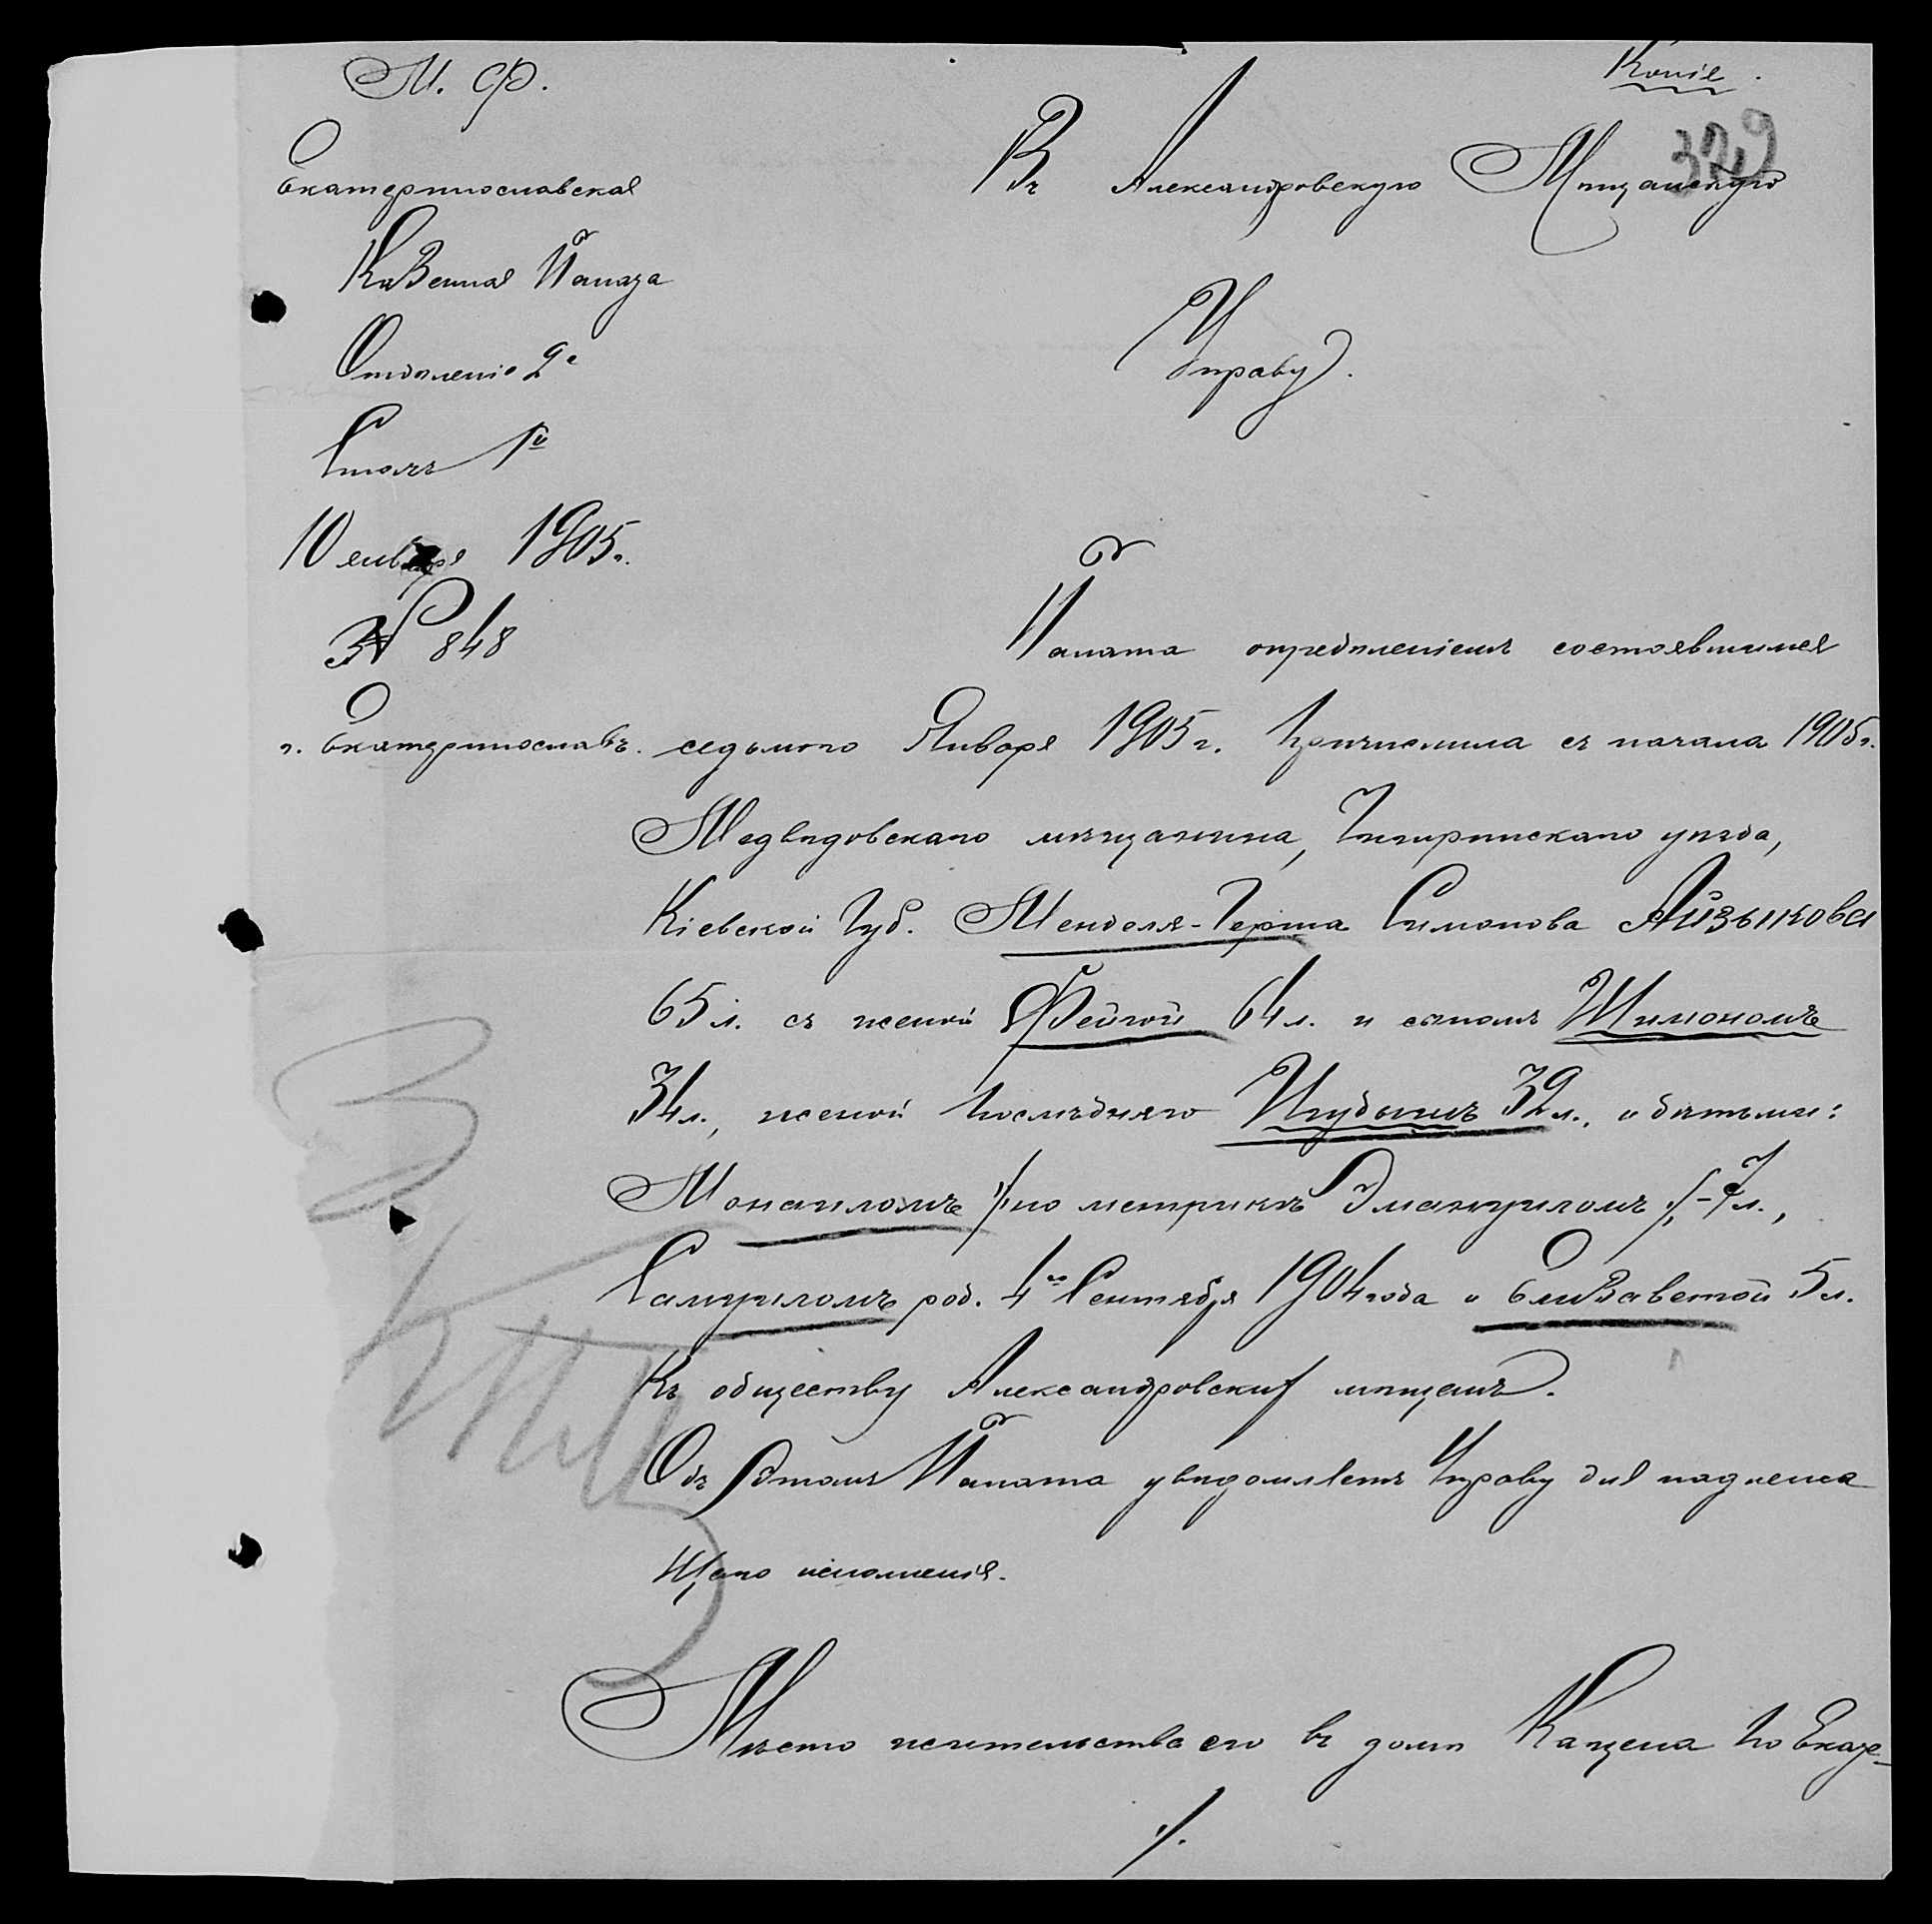 Копія.
329
М. Ф.
Екатеринославская
Казенная Палата
Отдѣленіе 2е
Столъ 1й
10 января 1905 г.
№ 848
г. Екатеринославъ.
Въ Александровскую Мѣщанскую
Управу.
Палата опредѣленіемъ состоявшимся
седьмого Января 1905 г. причислила съ начала 1905 г.
Медвѣдовскаго мѣщанина, Чигиринскаго уѣзда,
Кіевской губ. Менделя-Герша Симонова Айзыкова
65 л. съ женой Фейгой 64 л. и сыномъ Шимономъ
34 л., женой послѣдняго 32 л., и дѣтьми:
Монаиломъ /:по метрикѣ Эмануиломъ:/ - 7 л.,
Самуиломъ род. 4го Сентября 1904 года и Елизаветой 5 л.
къ обществу Александровских мѣщанъ.
Объ этомъ Палата увѣдомляетъ Управу для надлежа
щаго исполненія.
Мѣсто жительства его въ домѣ Кацена по Екате-
./.